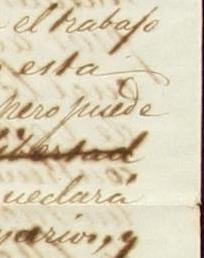 el trabajo
esta
pero puede
libertad
quedará
narios, y